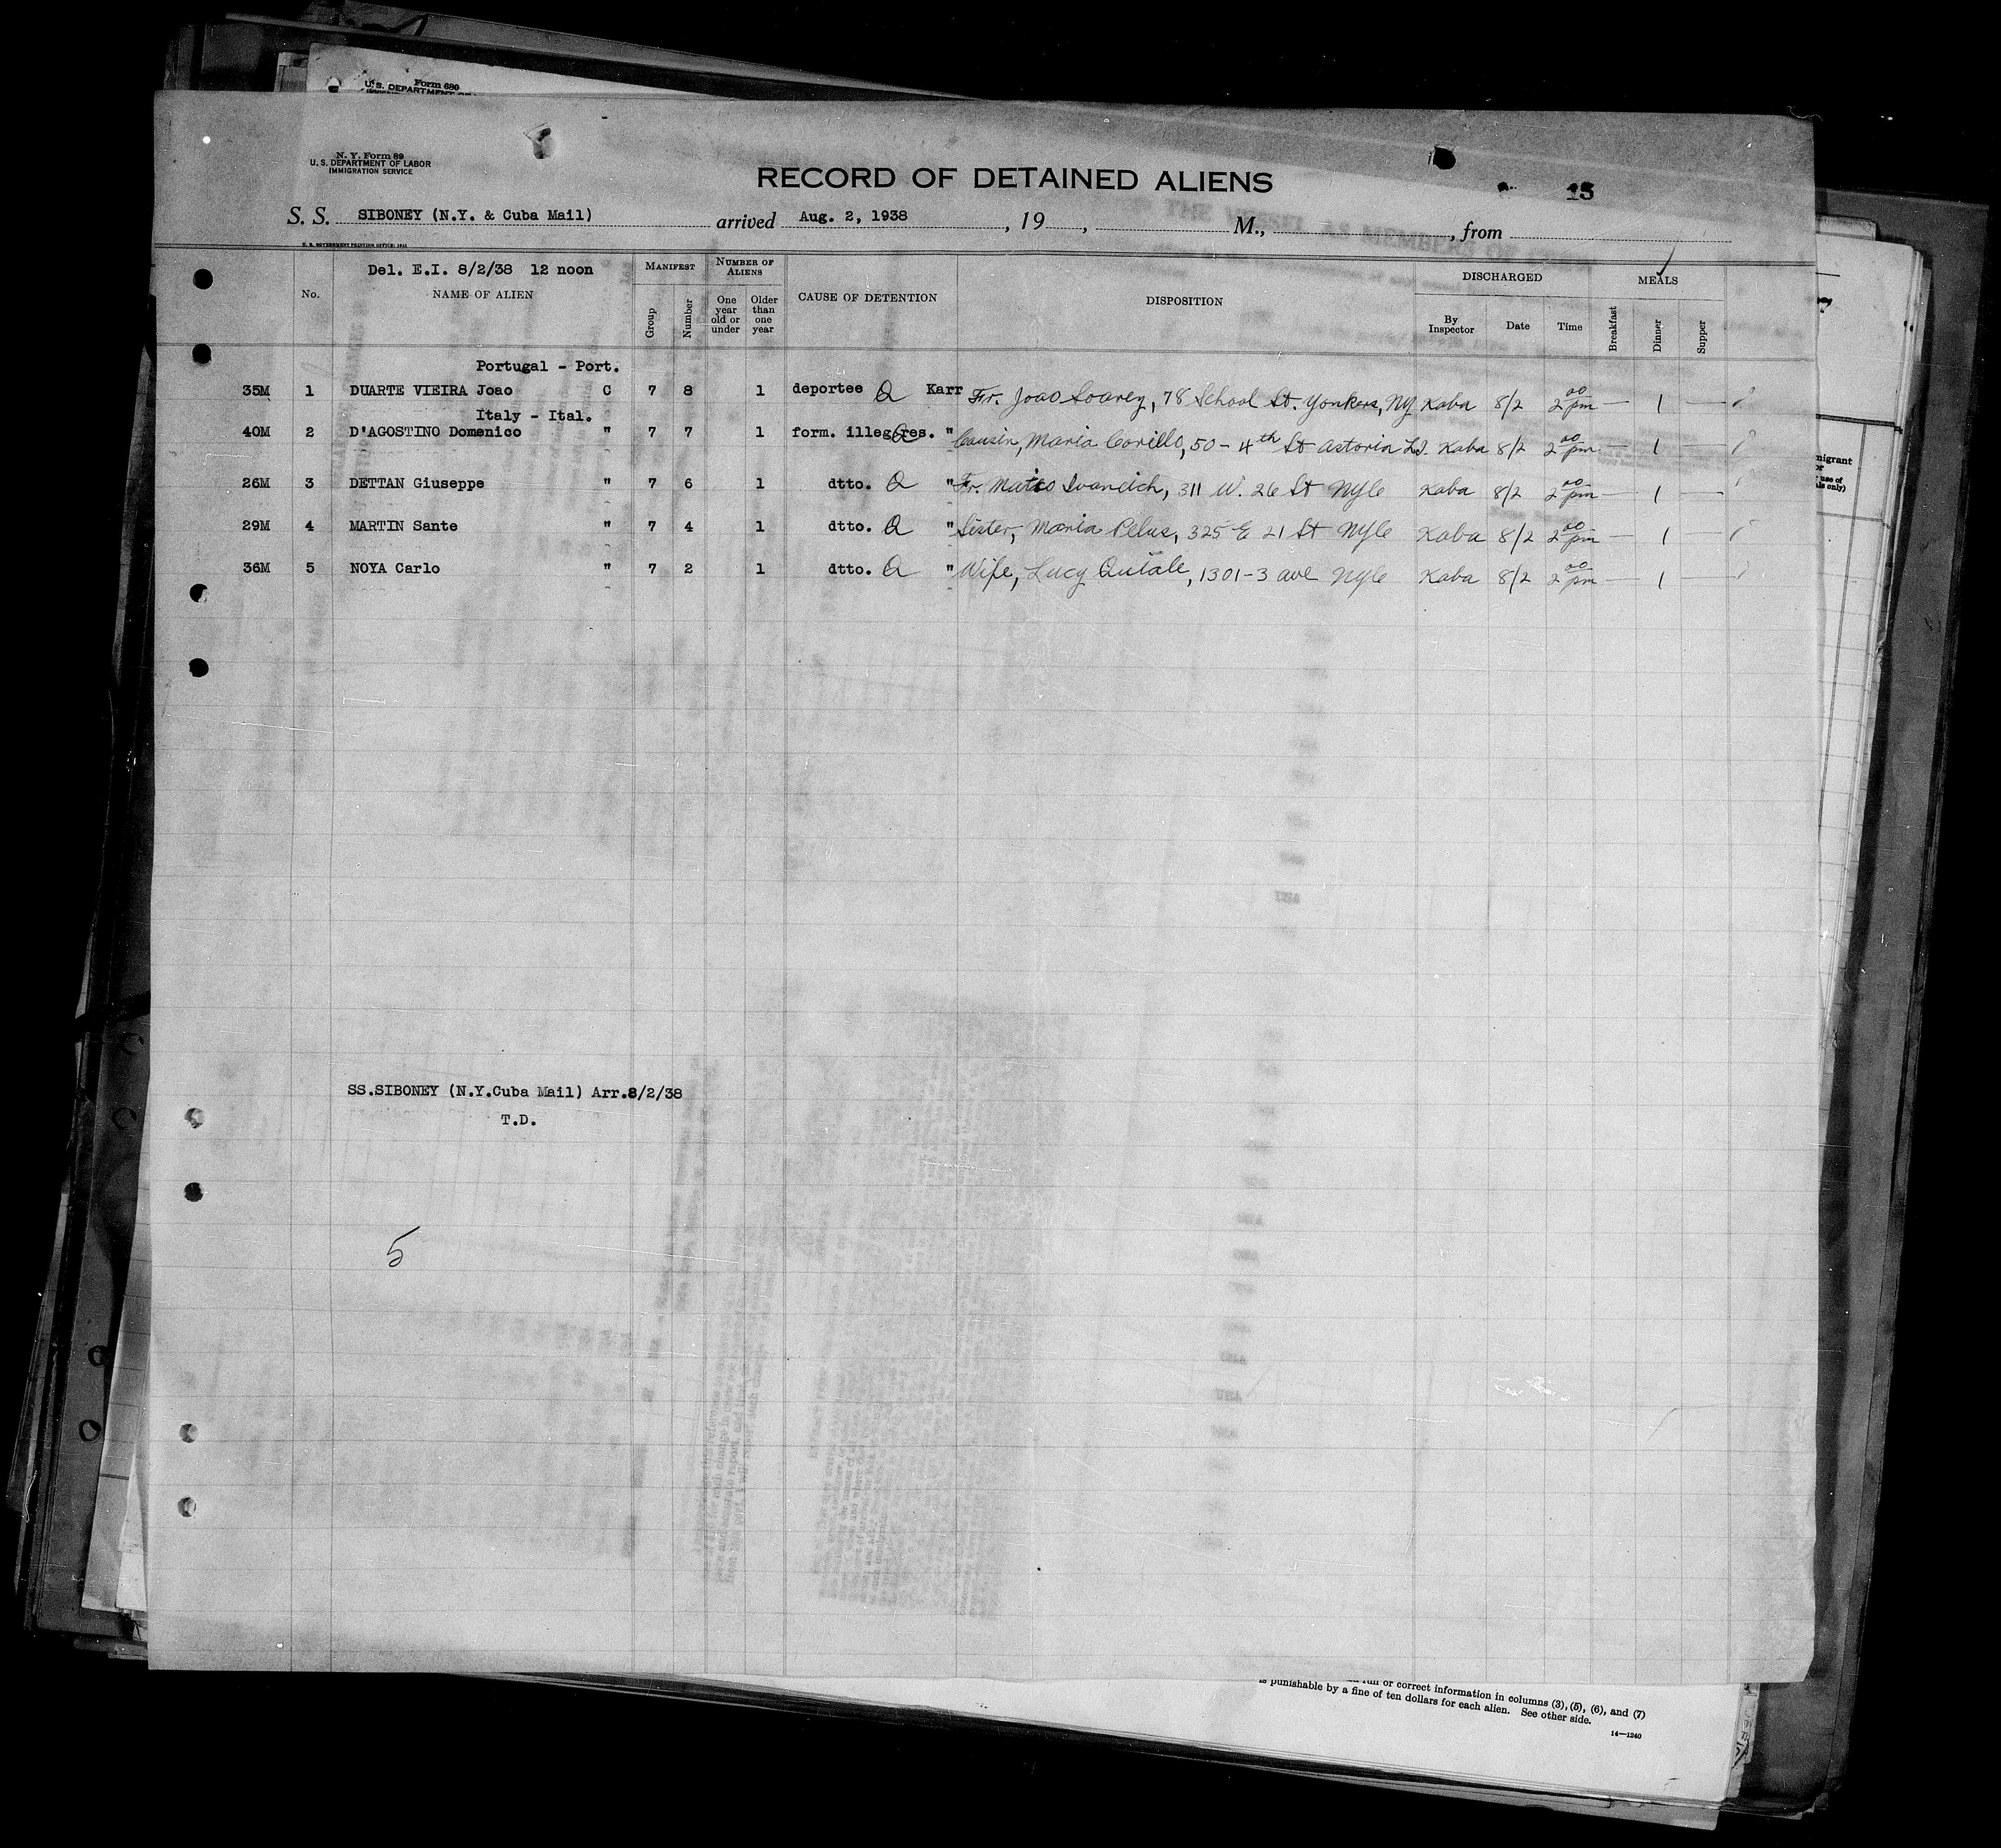 Form 680
U.S. DEPARTMENT
N. Y. Form 89
U. S. DEPARTMENT OF LABOR
IMMIGRATION SERVICE
RECORD OF DETAINED ALIENS
15
S. S. SIBONEY (N.Y. & Cuba Mail) arrived Aug. 2, 1938, 19, M., from
U. S. GOVERNMENT PRINTING OFFICE:
Del. E.I. 8/2/38 12 noon
No. NAME OF ALIEN MANIFEST Group Number NUMBER OF ALIENS One year old or under Older than one year CAUSE OF DETENTION DISPOSITION DISCHARGED By Inspector Date Time MEALS Breakfast Dinner Supper
Portugal - Port.
35M 1 DUARTE VIEIRA Joao C 7 8 1 deportee Q Karr Fr. Joao Soarez, 78 School St. Yonkers, NY Kaba 8/2 2 00 pm — 1 —
Italy - Ital.
40M 2 D'AGOSTINO Domenico " 7 7 1 form. illeg. res. " Cousin, Maria Corillo, 50 - 4th St Astoria L.I. Kaba 8/2 2 00 pm — 1 —
26M 3 DETTAN Giuseppe " 7 6 1 dtto. Q " Fr. Mateo Ivancich, 311 W. 26 St NYC Kaba 8/2 2 00 pm — 1 —
29M 4 MARTIN Sante " 7 4 1 dtto. Q " Sister, Maria Pelus, 325 E 21 St NYC Kaba 8/2 2 00 pm — 1 —
36M 5 NOYA Carlo " 7 2 1 dtto. Q " Wife, Lucy Quitale, 1301-3 ave NYC Kaba 8/2 2 00 pm — 1 —
SS.SIBONEY (N.Y.Cuba Mail) Arr.8/2/38
T.D.
5
or correct information in columns (3), (5), (6), and (7)
is punishable by a fine of ten dollars for each alien. See other side.
14—1240